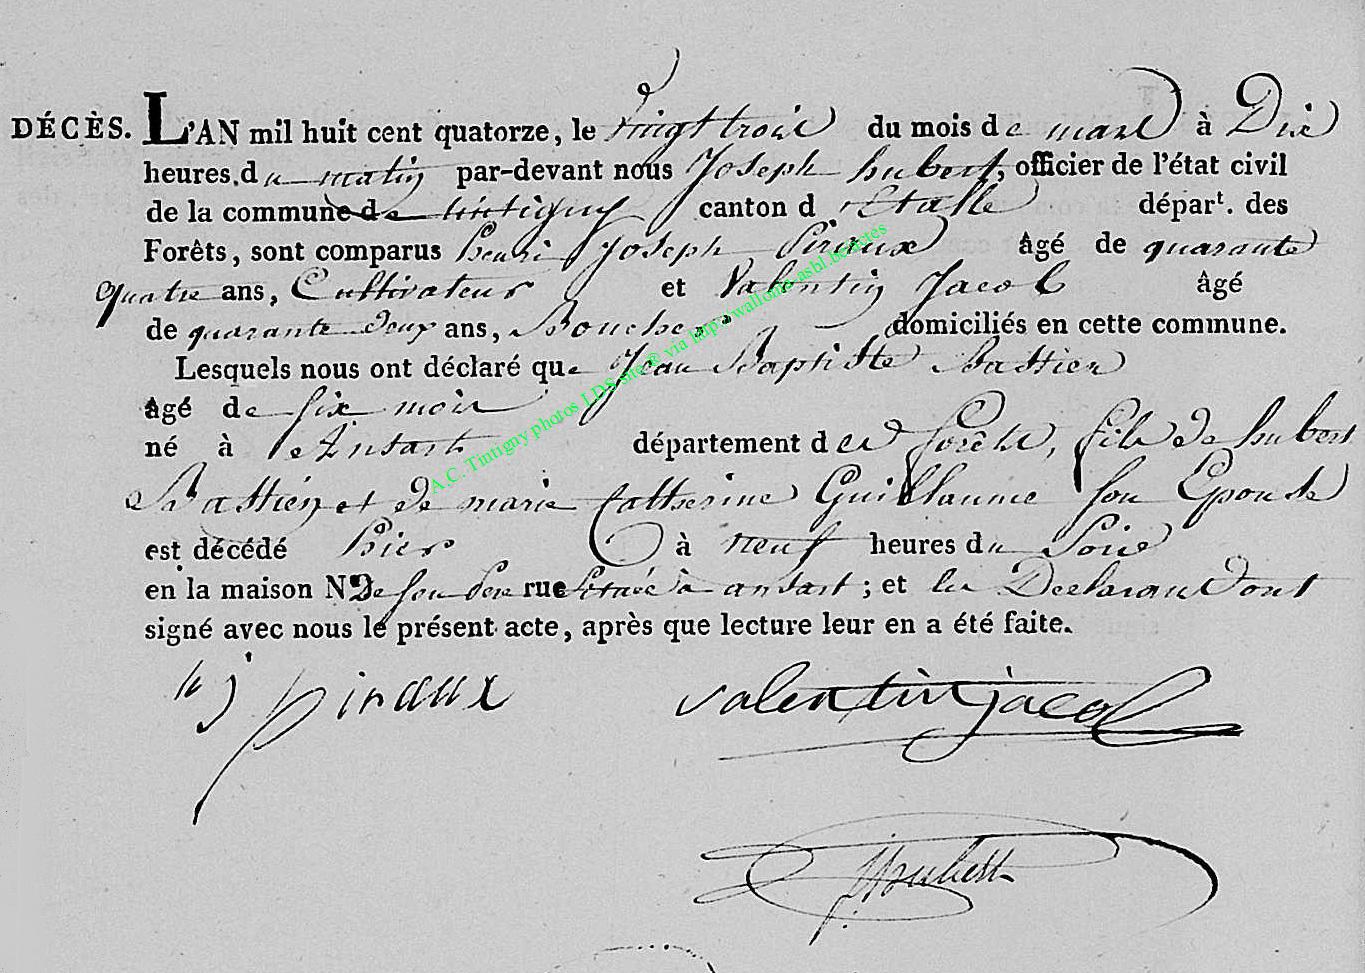 DÉCÈS. L'AN mil huit cent quatorze, le vingt trois du mois de mars à Dix
heures du matin par-devant nous Joseph hubert, officier de l'état civil
de la commune de tintigny canton d'Etalle départ. des
Forêts, sont comparus henri Joseph Piraux âgé de quarante
quatre ans, Cultivateur et Valentin Jacob âgé
de quarante deux ans, Boucher domiciliés en cette commune.
Lesquels nous ont déclaré que Jean Baptiste Bastien
âgé de six mois
né à Ansart département des forêts, fils de hubert
Bastien et de marie Catherine Guillaume son Epouse
est décédé hier à neuf heures du Soir
en la maison N. De son Père rue située à ansart ; et les Declarans ont
signé avec nous le présent acte, après que lecture leur en a été faite.
h j piraux valentin jacob
J hubert
A.C. Tintigny photos LDS site © via http://wallonia-asbl.be/actes